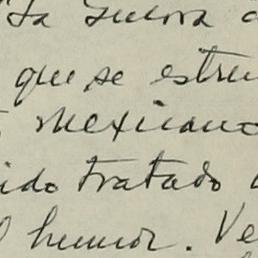 La Señora
que se estre
mexicano
ido tratado
humor. Ve